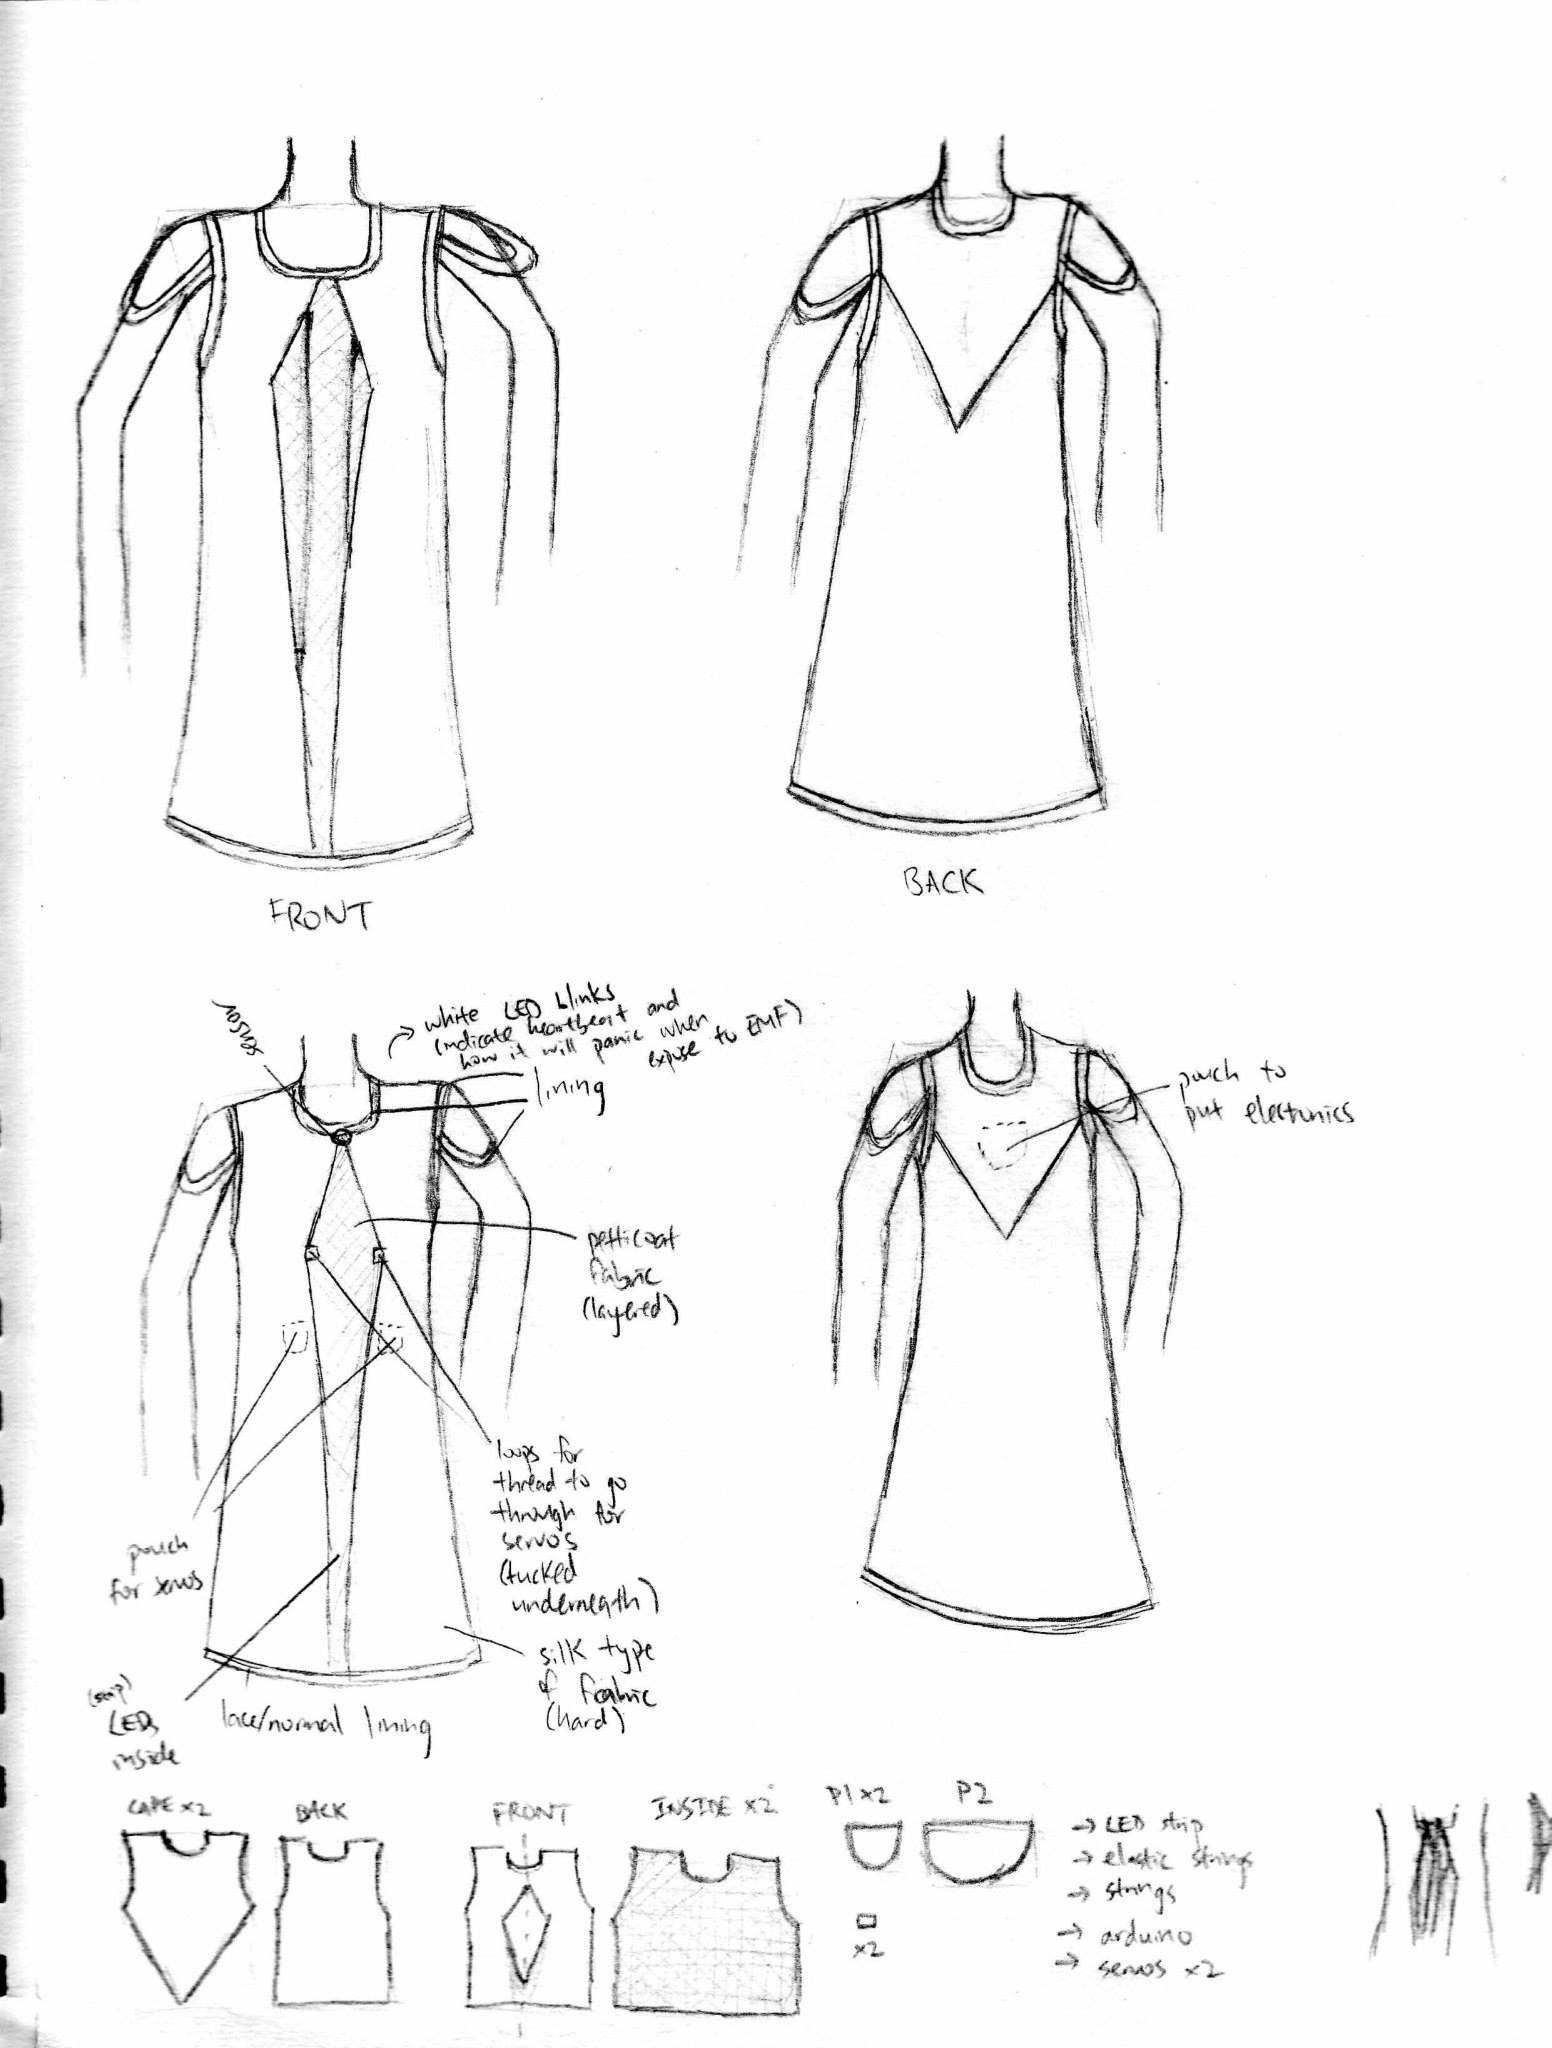 FRONT
BACK
sensor
white LED blinks
(indicate heartbeat and
how it will panic when
expose to EMF)
lining
pouch to
put electronics
petticoat
fabric
(layered)
loops for
thread to go
through for
servos
(tucked
underneath)
pouch
for servos
silk type
of fabric
(hard)
(strip)
LEDs
inside
lace/normal lining
CAPE x2
BACK
FRONT
INSIDE x2
P1 x2
P2
x2
→ LED strip
→ elastic strings
→ strings
→ arduino
→ servos x2